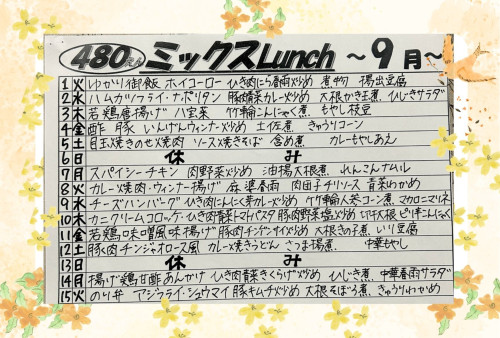 480えん ミックスLunch ～9月～
1 火 ゆかり御飯 ホイコーロー ひき肉にら春雨炒め 煮物 揚出豆腐
2 水 ハムカツフライ・ナポリタン 豚肉青菜カレー炒め 大根かき玉煮 ひじきサラダ
3 木 若鶏唐揚げ 八宝菜 竹輪こんにゃく煮 もやし枝豆
4 金 酢豚 いんげんウィンナー炒め 土佐煮 きゅうりコーン
5 土 目玉焼きのせ焼肉 ソース焼きそば 含め煮 カレーもやしあえ
6 日 休み
7 月 スパイシーチキン 肉野菜炒め 油揚大根煮 れんこんナムル
8 火 カレー焼肉・ウィンナー揚げ 麻婆春雨 肉団子チリソース 青菜わかめ
9 水 チーズハンバーグ ひき肉こんにゃく芽カレー炒め 竹輪人参コーン煮 マカロニマリネ
10 木 カニクリームコロッケ・ひき肉青菜トマトパスタ 豚肉野菜塩炒め 切干大根 ピリ辛こんにゃく
11 金 若鶏味噌風味揚げ 豚肉チンゲンサイ炒め 大根きの子煮 いり豆腐
12 土 豚肉チンジャオロース風 カレー焼きうどん さつま揚煮 中華もやし
13 日 休み
14 月 揚げ鶏甘酢あんかけ ひき肉青菜きくらげ炒め ひじき煮 中華春雨サラダ
15 火 のり弁 アジフライ・シュウマイ 豚キムチ炒め 大根そぼろ煮 きゅうりわかめ